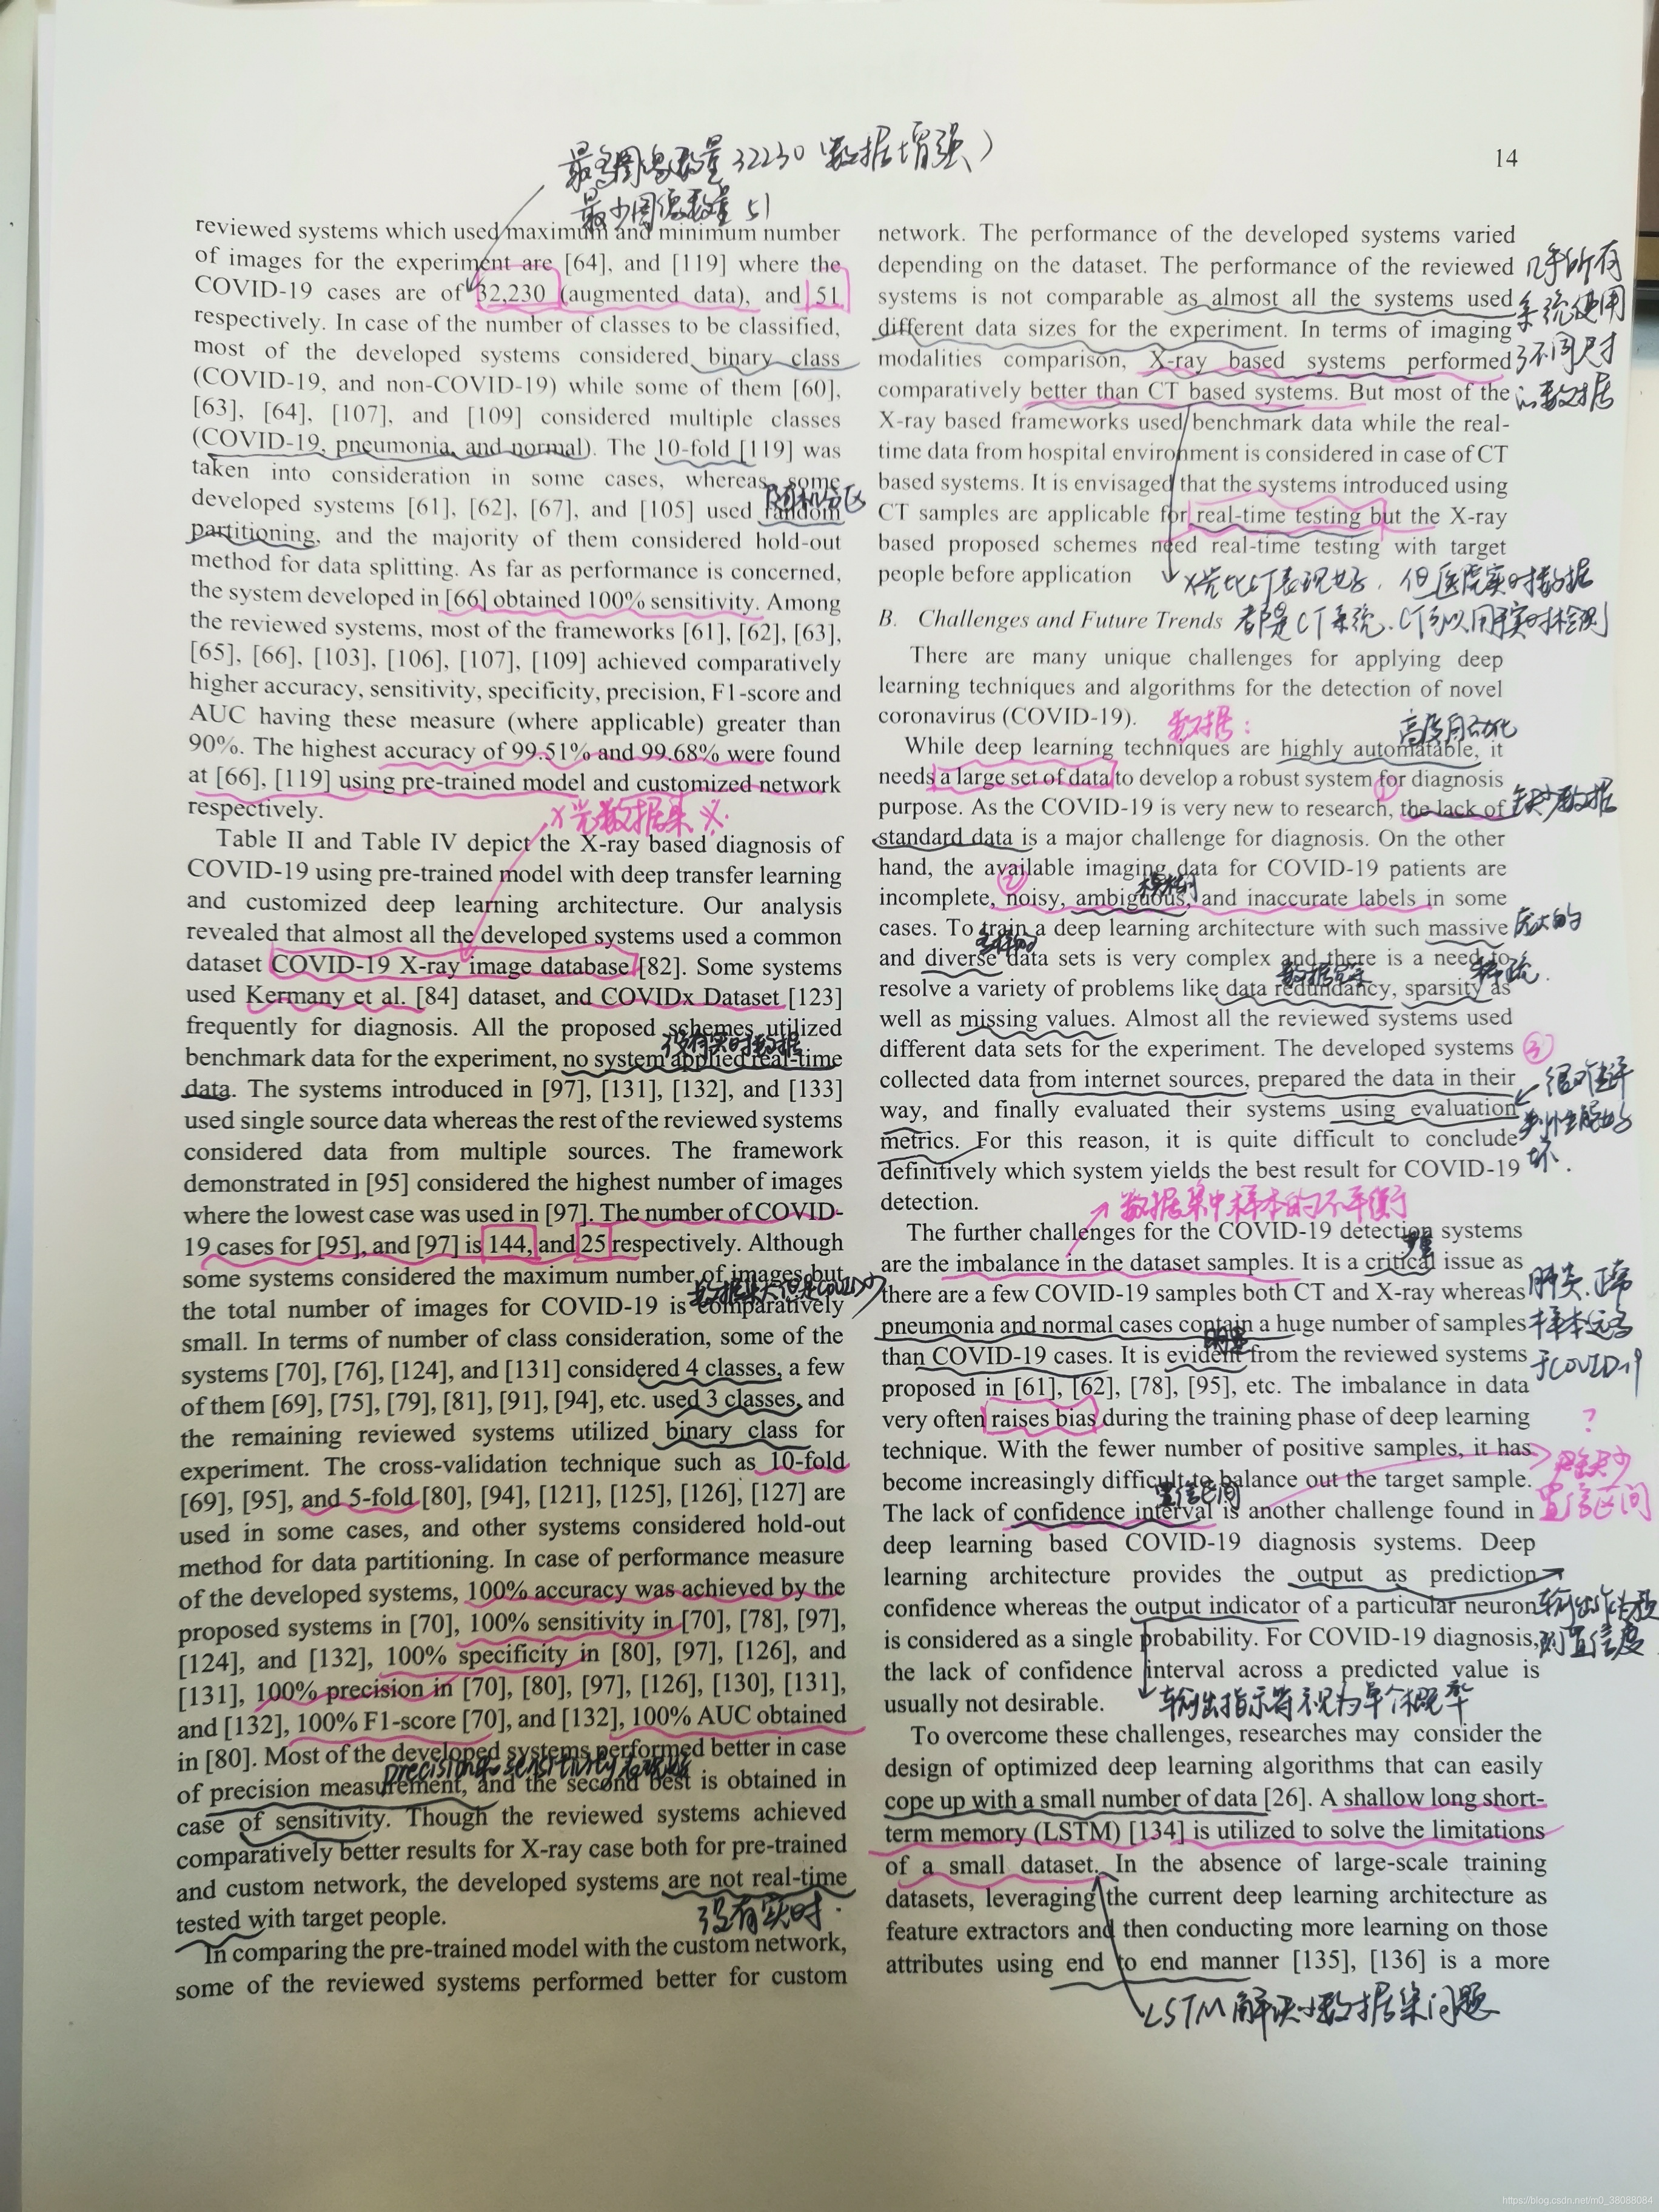 最多图像数量32230（数据增强）
最少图像数量51
14
reviewed systems which used maximum and minimum number
of images for the experiment are [64], and [119] where the
COVID-19 cases are of 32,230 (augmented data), and 51
respectively. In case of the number of classes to be classified,
most of the developed systems considered binary class
(COVID-19, and non-COVID-19) while some of them [60],
[63], [64], [107], and [109] considered multiple classes
(COVID-19, pneumonia, and normal). The 10-fold [119] was
taken into consideration in some cases, whereas some
随机分区
developed systems [61], [62], [67], and [105] used random
partitioning, and the majority of them considered hold-out
method for data splitting. As far as performance is concerned,
the system developed in [66] obtained 100% sensitivity. Among
the reviewed systems, most of the frameworks [61], [62], [63],
[65], [66], [103], [106], [107], [109] achieved comparatively
higher accuracy, sensitivity, specificity, precision, F1-score and
AUC having these measure (where applicable) greater than
90%. The highest accuracy of 99.51% and 99.68% were found
at [66], [119] using pre-trained model and customized network
respectively.
X光数据集※
Table II and Table IV depict the X-ray based diagnosis of
COVID-19 using pre-trained model with deep transfer learning
and customized deep learning architecture. Our analysis
revealed that almost all the developed systems used a common
dataset COVID-19 X-ray image database [82]. Some systems
used Kermany et al. [84] dataset, and COVIDx Dataset [123]
frequently for diagnosis. All the proposed schemes utilized
没有实时数据
benchmark data for the experiment, no system applied real-time
data. The systems introduced in [97], [131], [132], and [133]
used single source data whereas the rest of the reviewed systems
considered data from multiple sources. The framework
demonstrated in [95] considered the highest number of images
where the lowest case was used in [97]. The number of COVID-
19 cases for [95], and [97] is 144, and 25 respectively. Although
some systems considered the maximum number of images but
数据集大但是COVID少
the total number of images for COVID-19 is comparatively
small. In terms of number of class consideration, some of the
systems [70], [76], [124], and [131] considered 4 classes, a few
of them [69], [75], [79], [81], [91], [94], etc. used 3 classes, and
the remaining reviewed systems utilized binary class for
experiment. The cross-validation technique such as 10-fold
[69], [95], and 5-fold [80], [94], [121], [125], [126], [127] are
used in some cases, and other systems considered hold-out
method for data partitioning. In case of performance measure
of the developed systems, 100% accuracy was achieved by the
proposed systems in [70], 100% sensitivity in [70], [78], [97],
[124], and [132], 100% specificity in [80], [97], [126], and
[131], 100% precision in [70], [80], [97], [126], [130], [131],
and [132], 100% F1-score [70], and [132], 100% AUC obtained
in [80]. Most of the developed systems performed better in case
precision sensitivity
of precision measurement, and the second best is obtained in
case of sensitivity. Though the reviewed systems achieved
comparatively better results for X-ray case both for pre-trained
and custom network, the developed systems are not real-time
tested with target people.
没有实时.
In comparing the pre-trained model with the custom network,
some of the reviewed systems performed better for custom
network. The performance of the developed systems varied
depending on the dataset. The performance of the reviewed
几乎所有
systems is not comparable as almost all the systems used
系统使用
different data sizes for the experiment. In terms of imaging
modalities comparison, X-ray based systems performed
了不同尺寸
comparatively better than CT based systems. But most of the
的数据
X-ray based frameworks used benchmark data while the real-
time data from hospital environment is considered in case of CT
based systems. It is envisaged that the systems introduced using
CT samples are applicable for real-time testing but the X-ray
based proposed schemes need real-time testing with target
people before application
X光比CT表现好，但医院实时数据
都是CT系统，CT可以用于实时检测
B. Challenges and Future Trends
There are many unique challenges for applying deep
learning techniques and algorithms for the detection of novel
coronavirus (COVID-19).
数据：
高度自动化
While deep learning techniques are highly automatable, it
needs a large set of data to develop a robust system for diagnosis
①
purpose. As the COVID-19 is very new to research, the lack of
缺少数据
standard data is a major challenge for diagnosis. On the other
hand, the available imaging data for COVID-19 patients are
②
模糊的
incomplete, noisy, ambiguous, and inaccurate labels in some
cases. To train a deep learning architecture with such massive
庞大的
多样的
and diverse data sets is very complex and there is a need to
数据冗余
稀疏
resolve a variety of problems like data redundancy, sparsity as
well as missing values. Almost all the reviewed systems used
different data sets for the experiment. The developed systems
③
collected data from internet sources, prepared the data in their
很难评
way, and finally evaluated their systems using evaluation
判性能好
metrics. For this reason, it is quite difficult to conclude
坏.
definitively which system yields the best result for COVID-19
detection.
数据集中样本的不平衡
The further challenges for the COVID-19 detection systems
are the imbalance in the dataset samples. It is a critical issue as
there are a few COVID-19 samples both CT and X-ray whereas
肺炎、正常
pneumonia and normal cases contain a huge number of samples
样本远多
明显
than COVID-19 cases. It is evident from the reviewed systems
于COVID19
proposed in [61], [62], [78], [95], etc. The imbalance in data
very often raises bias during the training phase of deep learning
?
technique. With the fewer number of positive samples, it has
become increasingly difficult to balance out the target sample.
置信区间
置信区间
The lack of confidence interval is another challenge found in
deep learning based COVID-19 diagnosis systems. Deep
learning architecture provides the output as prediction
confidence whereas the output indicator of a particular neuron
输出作为预
is considered as a single probability. For COVID-19 diagnosis,
测置信度
the lack of confidence interval across a predicted value is
usually not desirable.
输出指示符视为单个概率
To overcome these challenges, researches may consider the
design of optimized deep learning algorithms that can easily
cope up with a small number of data [26]. A shallow long short-
term memory (LSTM) [134] is utilized to solve the limitations
of a small dataset. In the absence of large-scale training
datasets, leveraging the current deep learning architecture as
feature extractors and then conducting more learning on those
attributes using end to end manner [135], [136] is a more
LSTM解决小数据集问题
https://blog.csdn.net/m0_38088084